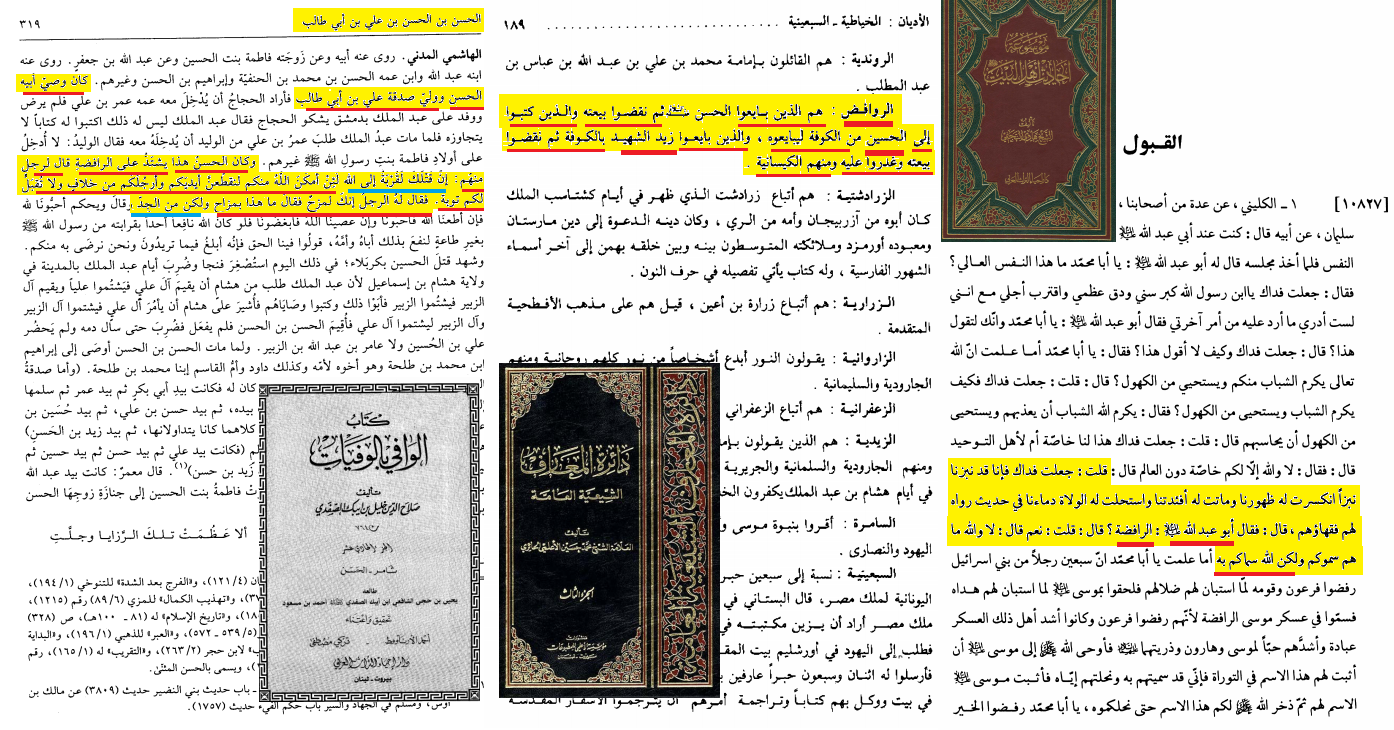 الحسن بن الحسن بن علي بن أبي طالب
٣١٩
الهاشمي المدني. روى عنه أبيه وعن زَوجَته فاطمة بنت الحسين وعن عبد الله بن جعفر. روى عنه
ابنه عبد الله وابن عمه الحسن بن محمد بن الحنفيّة وإبراهيم بن الحسن وغيرهم. كان وصيّ أبيه
الحسن ووليّ صدقة علي بن أبي طالب فأراد الحجاجُ أن يُدْخِلَ معه عمه عمر بن علي فلم يرضَ
ووفد على عبد الملك بدمشق يشكو الحجاج فقال عبد الملك ليس له ذلك اكتبوا له كتاباً لا
يتجاوزه فلما مات عبدُ الملك طلبَ عمرُ بن علي من الوليد أن يُدخِلَهُ معه فقال الوليدُ: لا أُدخِلُ
على أولادِ فاطمة بنتِ رسولِ الله ﷺ غيرهم. وكان الحسنُ هذا يشتَدُّ على الرافضةِ قال لرجلٍ
منهُم: إنَّ قتلَكَ لَقُرْبَةٌ إلى الله لئِنْ أمكنَ اللهُ منكم لنقطعنَّ أيديَكُم وأرجُلَكُم من خلافٍ ولا نَقبَلُ
لكم توبة. فقال له الرجلُ إنكَ لَمزحٌ فقال ما هذا بمزاح ولكن من الجِدّ وقالَ ويحكم أحبُّونَا لله
فإن أطعنا الله فأحبُّونَا وإن عصينا الله فأبغضُونا فلو كان الله نافعاً أحداً بقرابته من رسول الله ﷺ
بغيرِ طاعةٍ لنفعَ بذلك أباهُ وأُمَّهُ، قولُوا فينا الحق فإنَّه أبلغُ فيما تريدُونَ ونحن نرضَى به منكم.
وشهد قتلَ الحسين بكربَلاء؛ في ذلك اليوم استُصْغِرَ فنجا وضُرِبَ أيام عبد الملك بالمدينة في
ولاية هشام بن إسماعيل لأن عبد الملك طلب من هشام أن يقيمَ آلَ علي فيَشتُموا علياً ويقيم آل
الزبير فيشتُموا الزبير فأبَوْا ذلك وكتبوا وصَايَاهُم فأشيرَ على هشام أن يأمُرَ آلَ علي فيشتموا آل الزبير
وآل الزبير ليشتموا آل علي فأُقِيمَ الحسن بن الحسن فلم يفعَل فضُرِبَ حتى سالَ دمه ولم يَحضُر
علي بن الحُسين ولا عامر بن عبد الله بن الزبير. ولما مات الحسن بن الحسن أوصَى إلى إبراهيم
ابن محمد بن طلحة وهو أخوه لأمّه وكذلك داود وأمُّ القاسم إبنا محمد بن طلحة. (وأما صدقةُ
كان له فكانت بيدِ أبي بكرٍ ثم بيد عمر ثم سلمها
بيده، ثم بيد حسن بن علي، ثم بيد حُسَين بن
كلاهما كانا يتداولانها، ثم بيد زيد بن الحَسنِ)
م (فكانت بيد علي ثم بيد حسن ثم بيد حسين ثم
زَيد بن حسن)(١). قال معمرٌ: كانت بيد عبد الله
تْ فاطمةُ بنت الحسين إلى جنازةِ زوجِهَا الحسن
ألا عَـظُـمَـتْ تـلـكَ الـرَّزايـا وجـلَّـتِ
ان (١٢١/٤)، و«الفرج بعد الشدة» للتنوخي (١٩٤/١)،
٣٧)، و«تهذيب الكمال» للمزي (٨٩/٦) رقم (١٢١٥)،
١٨)، و«تاريخ الإسلام» له (٨١ ـ ١٠٠هـ)، ص (٣٢٨)
(٥٣٩/٥ ـ ٥٧٢)، و«العبر» للذهبي (١٩٦/١)، و«البداية
» لابن حجر (٢٦٣/٢)، و«التقريب» له (١٦٥/١)، رقم
)، ويسمى بالحسن المثنّى.
ـ باب حديث بني النضير حديث (٣٨٠٩) عن مالك بن
أوس، ومسلم في الجهاد والسير باب حكم الفيء حديث (١٧٥٧).
كتاب
الوافي بالوفيات
تأليف
صلاح الدين خليل بن أيبك الصفدي
الجزء الحادي عشر
ثامر ـ الحسن
طالعه
يحيى بن حجي الشافعي ابن أيبك الصفدي أحمد بن مسعود
تحقيق واعتناء
أحمد الأرناؤوط تركي مصطفى
دار إحياء التراث العربي
بيروت ـ لبنان
الأديان : الخياطية ـ السبعينية
١٨٩
الروندية : هم القائلون بإمامة محمد بن علي بن عبد الله بن عباس بن
عبد المطلب .
الروافض : هم الذين بايعوا الحسن ثم نقضوا بيعته والذين كتبوا
إلى الحسين من الكوفة ليبايعوه ، والذين بايعوا زيد الشهيد بالكوفة ثم نقضوا
بيعته وغدروا عليه ومنهم الكيسانية .
الزرادشتية : هم أتباع زرادشت الذي ظهر في أيام كشتاسب الملك
كان أبوه من آزربيجان وأمه من الري ، وكان دينه الدعوة إلى دين مارستان
ومعبوده أورمزد وملائكته المتوسطون بينه وبين خلقه بهمن إلى آخر أسماء
الشهور الفارسية ، وله كتاب يأتي تفصيله في حرف النون .
الزرارية : هم أتباع زرارة بن أعين ، قيل هم على مذهب الأفطحية
المتقدمة .
الزاروانية : يقولون النور أبدع أشخاصاً من نور كلهم روحانية ومنهم
الجارودية والسليمانية .
الزعفرانية : هم أتباع الزعفراني
الزيدية : هم الذين يقولون بإما
ومنهم الجارودية والسلمانية والجريرية
في أيام هشام بن عبد الملك يكفرون الخ
السامرة : أقروا بنبوة موسى و
اليهود والنصارى .
السبعينية : نسبة إلى سبعين حبر
اليونانية لملك مصر، قال البستاني في
ملك مصر أراد أن يزين مكتبته في
فطلب إلى اليهود في أورشليم بيت المقد
فأرسلوا له اثنان وسبعون حبراً عارفين ب
في بيت ووكل بهم كتاباً وتراجمة أمرهم أن يترجموا الأسفار المقدسة
دائرة المعارف
الشيعية العامة
تأليف
العلامة الشيخ محمد حسين الأعلمي الحائري
الجزء الثالث
دائرة المعارف الشيعية العامة
موسوعة
أحاديث أهل البيت
تأليف
الشيخ هادي النجفي
القبول
[١٠٨٢٧] ١ ـ الكليني ، عن عدة من أصحابنا ،
سليمان ، عن أبيه قال : كنت عند أبي عبد الله
النفس فلما أخذ مجلسه قال له أبو عبد الله : يا أبا محمّد ما هذا النفس العالي ؟
فقال : جعلت فداك ياابن رسول الله كبر سني ودق عظمي واقترب أجلي مع انني
لست أدري ما أرد عليه من أمر آخرتي فقال أبو عبد الله : يا أبا محمّد وانّك لتقول
هذا؟ قال : جعلت فداك وكيف لا أقول هذا؟ فقال : يا أبا محمّد أما علمت انّ الله
تعالى يكرم الشباب منكم ويستحيي من الكهول ؟ قال : قلت : جعلت فداك فكيف
يكرم الشباب ويستحيى من الكهول ؟ فقال : يكرم الله الشباب أن يعذبهم ويستحيى
من الكهول أن يحاسبهم قال : قلت : جعلت فداك هذا لنا خاصّة أم لأهل التوحيد
قال : فقال : لا والله إلّا لكم خاصّة دون العالم قال : قلت : جعلت فداك فإنا قد نبزنا
نبزاً انكسرت له ظهورنا وماتت له أفئدتنا واستحلت له الولاة دماءنا في حديث رواه
لهم فقهاؤهم ، قال : فقال أبو عبد الله : الرافضة ؟ قال : قلت : نعم قال : لا والله ما
هم سموكم ولكن الله سماكم به أما علمت يا أبا محمّد انّ سبعين رجلاً من بني اسرائيل
رفضوا فرعون وقومه لمّا استبان لهم ضلالهم فلحقوا بموسى لما استبان لهم هداه
فسمّوا في عسكر موسى الرافضة لأنّهم رفضوا فرعون وكانوا أشد أهل ذلك العسكر
عبادة وأشدَّهم حبّاً لموسى وهارون وذريتهما فأوحى الله إلى موسى أن
أثبت لهم هذا الاسم في التوراة فإنّي قد سميتهم به ونحلتهم إيّاه فأثبت موسى
الاسم لهم ثمّ ذخر الله لكم هذا الاسم حتى نحلكموه ، يا أبا محمد رفضوا الخير